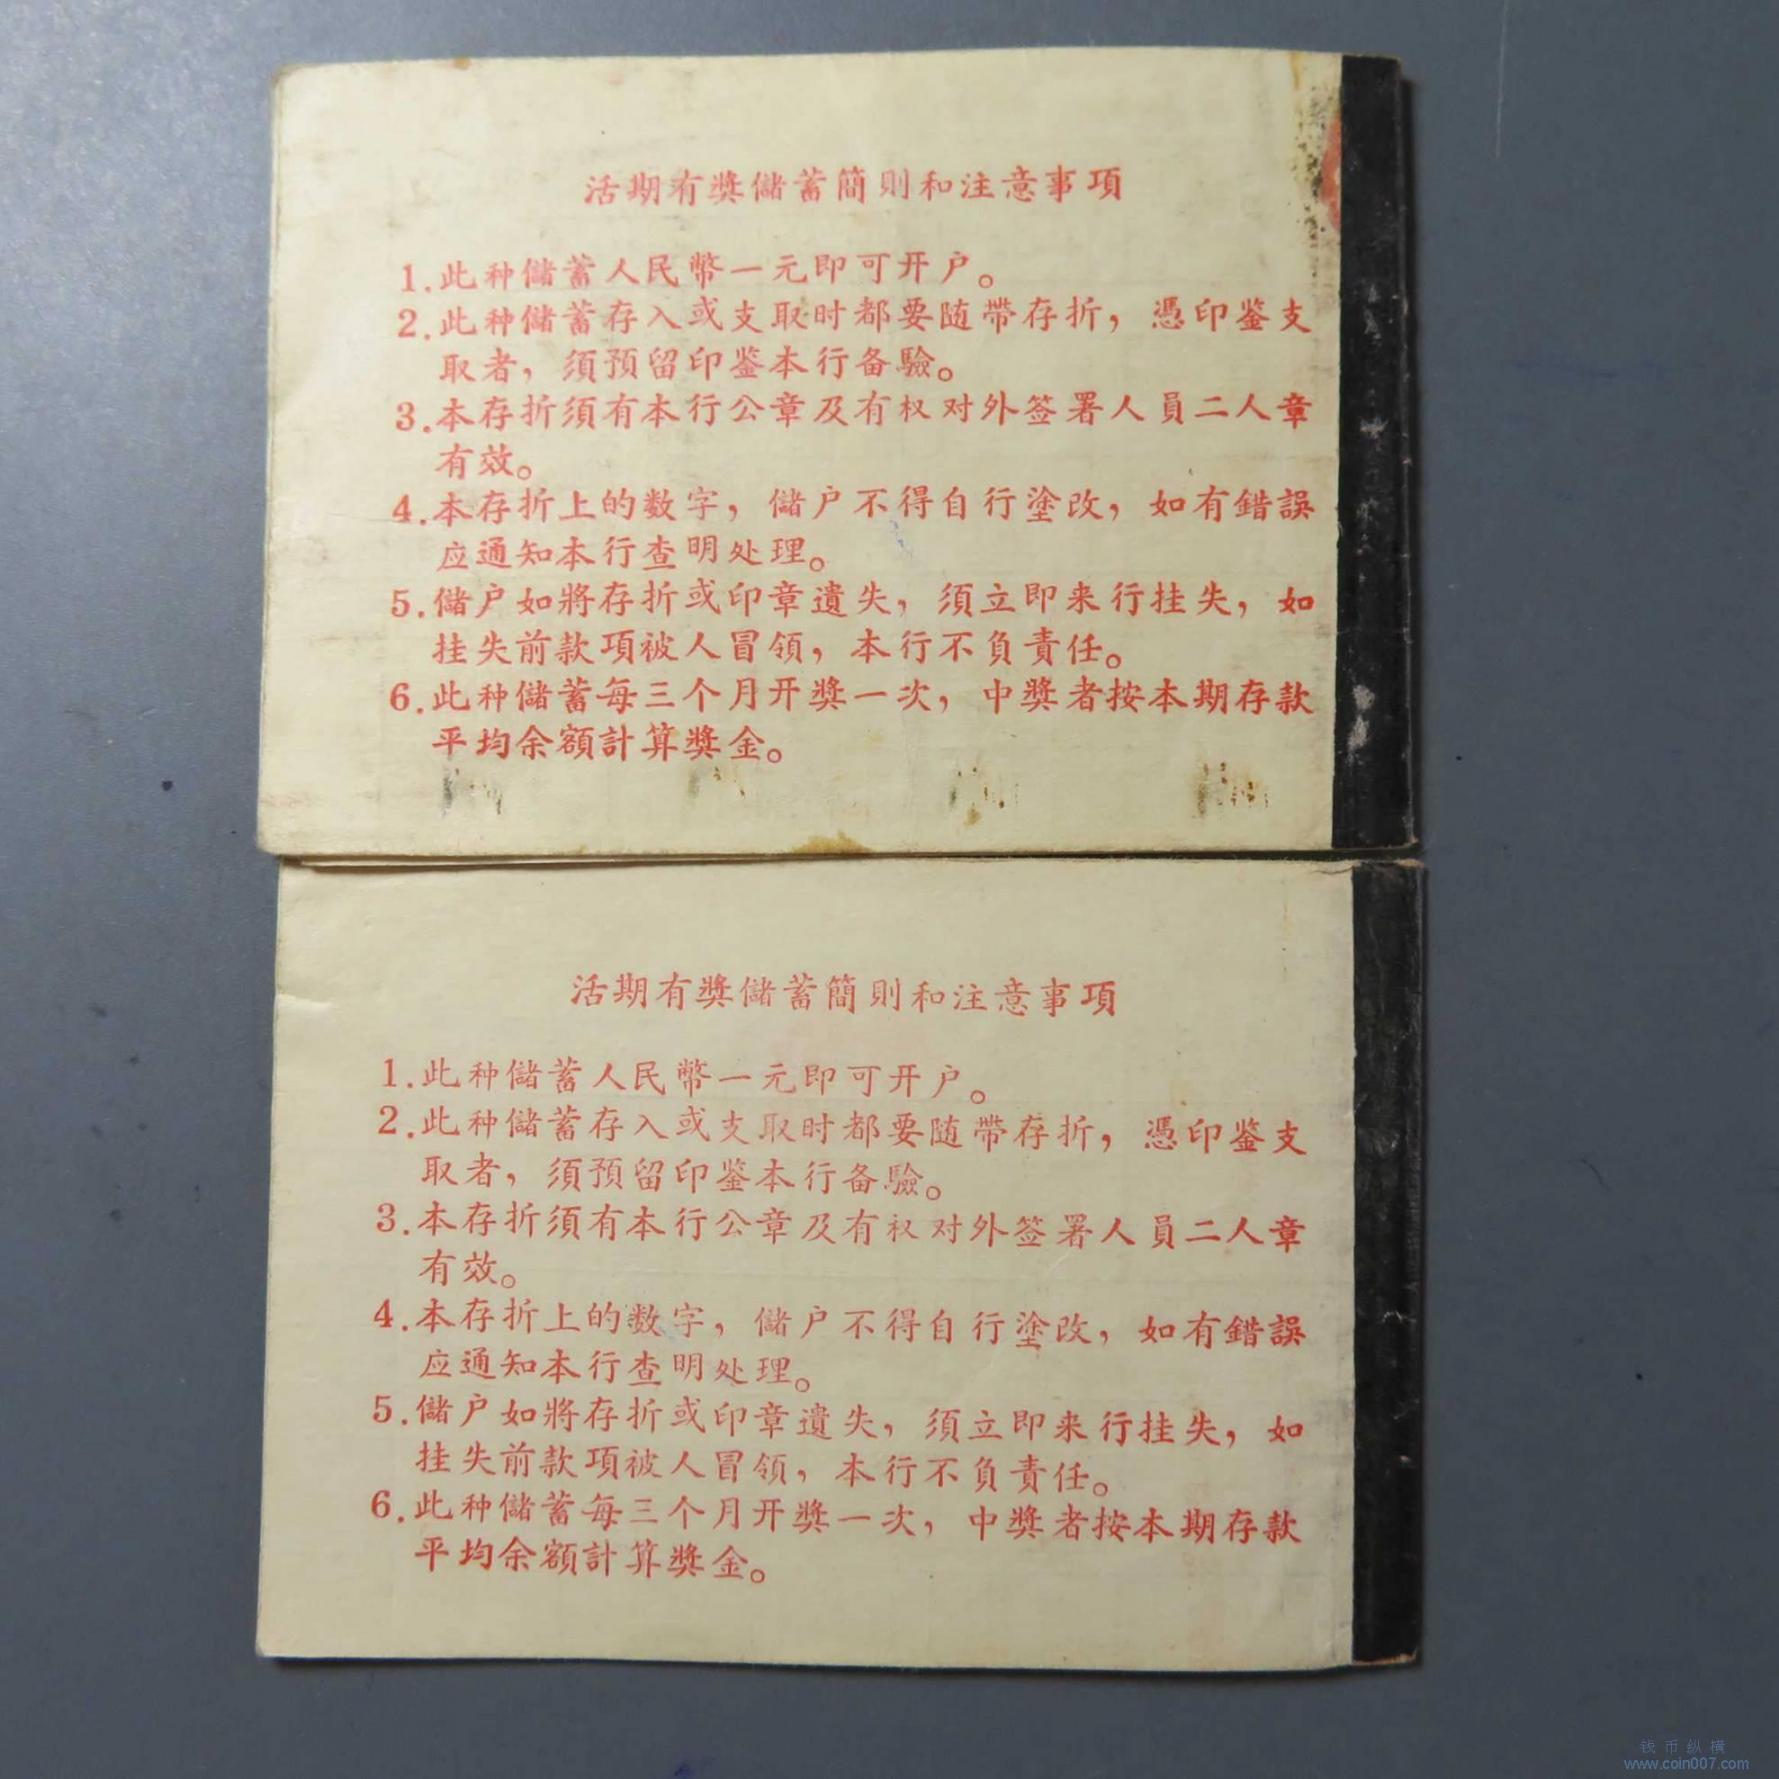 活期有獎儲蓄簡則和注意事項
1.此种儲蓄人民幣一元即可开户。
2.此种儲蓄存入或支取时都要随帶存折，憑印鉴支
取者，須預留印鉴本行备驗。
3.本存折須有本行公章及有权对外签署人員二人章
有效。
4.本存折上的数字，儲户不得自行塗改，如有錯誤
应通知本行查明处理。
5.儲户如將存折或印章遺失，須立即来行挂失，如
挂失前款項被人冒領，本行不負責任。
6.此种儲蓄每三个月开獎一次，中獎者按本期存款
平均余額計算獎金。
活期有獎儲蓄簡則和注意事項
1.此种儲蓄人民幣一元即可开户。
2.此种儲蓄存入或支取时都要随帶存折，憑印鉴支
取者，須預留印鉴本行备驗。
3.本存折須有本行公章及有权对外签署人員二人章
有效。
4.本存折上的数字，儲户不得自行塗改，如有錯誤
应通知本行查明处理。
5.儲户如將存折或印章遺失，須立即来行挂失，如
挂失前款項被人冒領，本行不負責任。
6.此种儲蓄每三个月开獎一次，中獎者按本期存款
平均余額計算獎金。
钱币纵横
www.coin007.com